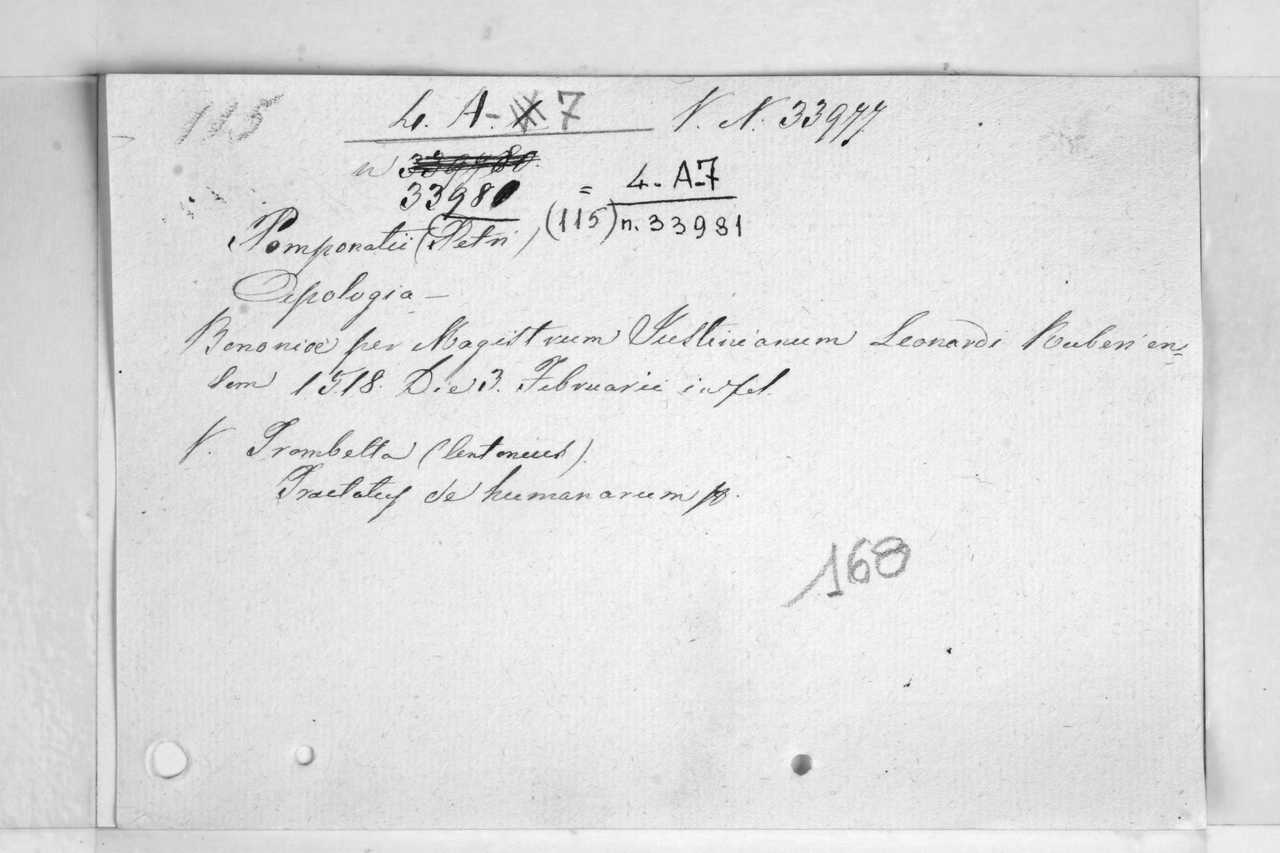 115
4. A. 7 V. N. 33977
n 33980
33980 = 4. A-7
(115) n. 33981
Pomponatii (Petri)
Apologia —
Bononiæ per Magistrum Justinianum Leonardi Ruberien=
sem 1518. Die 3. Februarii in fol.
V. Trombetta (Antonius).
Tractatus de humanarum
168